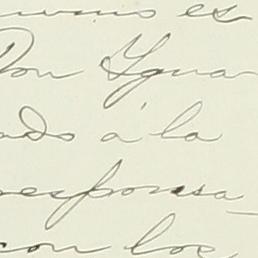 es
Don Ygna
ado á la
responsa-
con los